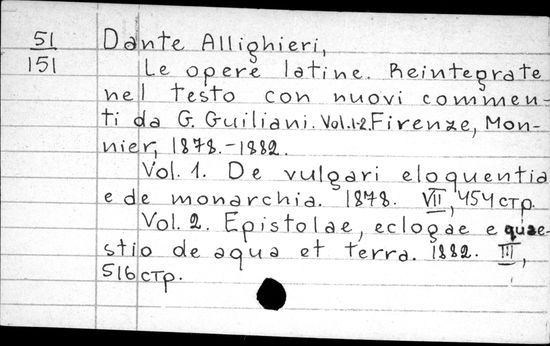 51 Dante Allighieri,
151 Le opere latine. Reintegrate
nel testo con nuovi commen-
ti da G. Guiliani. Vol.1-2. Firenze, Mon-
nier, 1878.-1882.
Vol. 1. De vulgari eloquentia
e de monarchia. 1878. VII, 454 стр.
Vol. 2. Epistolae, eclogae e quae-
stio de aqua et terra. 1882. III,
516 стр.